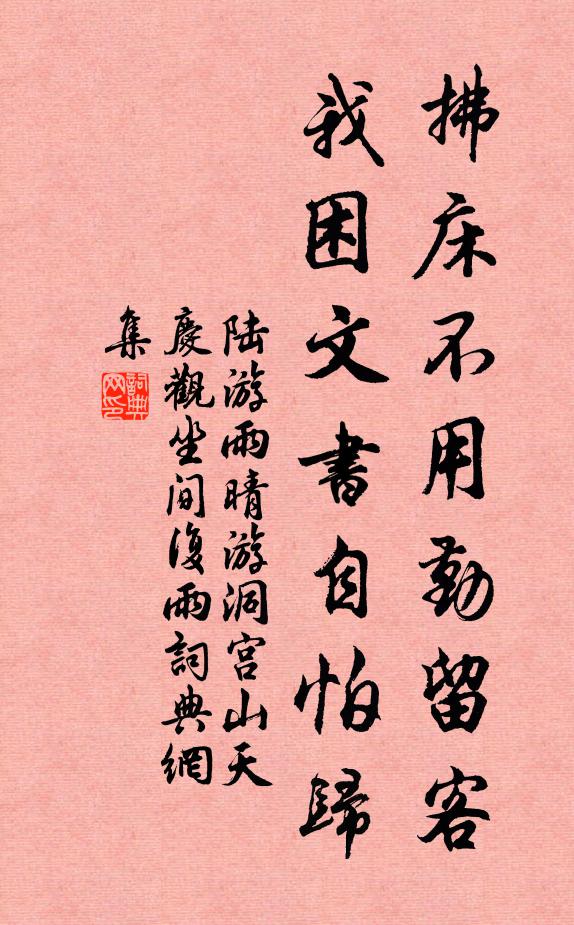 拂床不用勤留客
我困文書自怕歸
陆游雨晴游洞宫山天
慶觀坐间復雨詞典網
集
詞典
网印